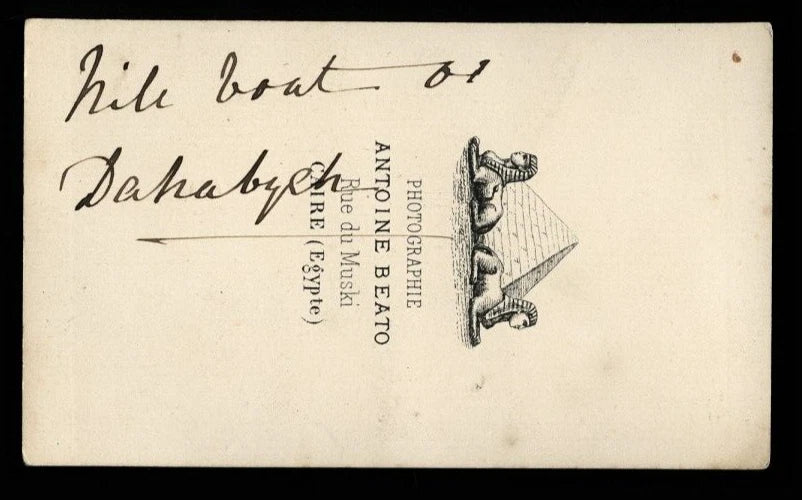 Nile boat or
Dahabyeh
PHOTOGRAPHIE
ANTOINE BEATO
Rue du Muski
CAIRE (Egypte)